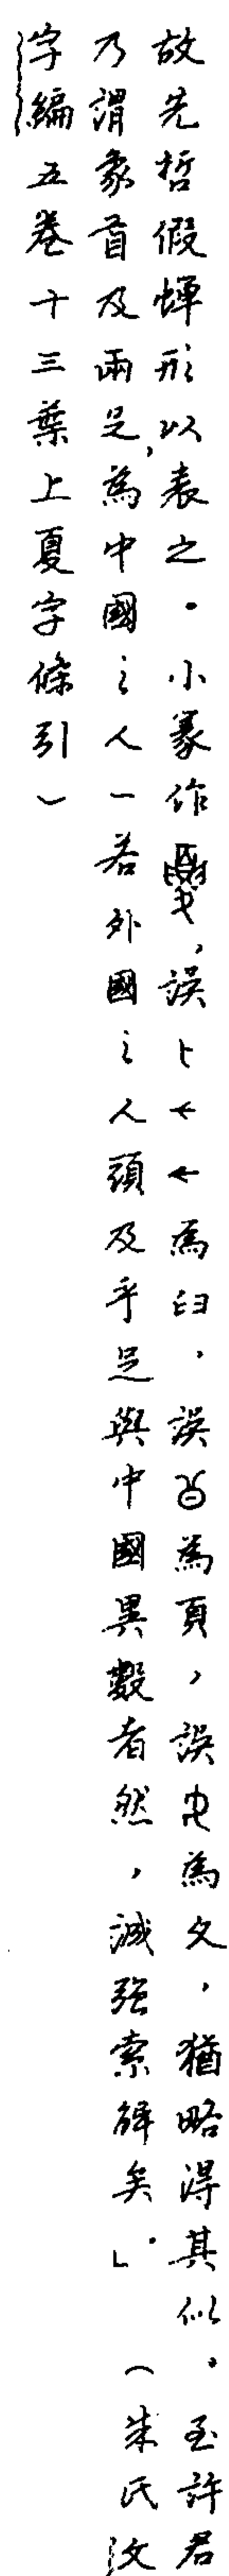 故先哲假蟬形以表之。小篆作，誤為臼，誤為頁，誤為夊，猶略得其似。至許君
乃謂象首及兩足，為中國之人一若外國之人頭及手足與中國異數者然，誠強索解矣。」（朱氏文
字編五卷十三葉上夏字條引）